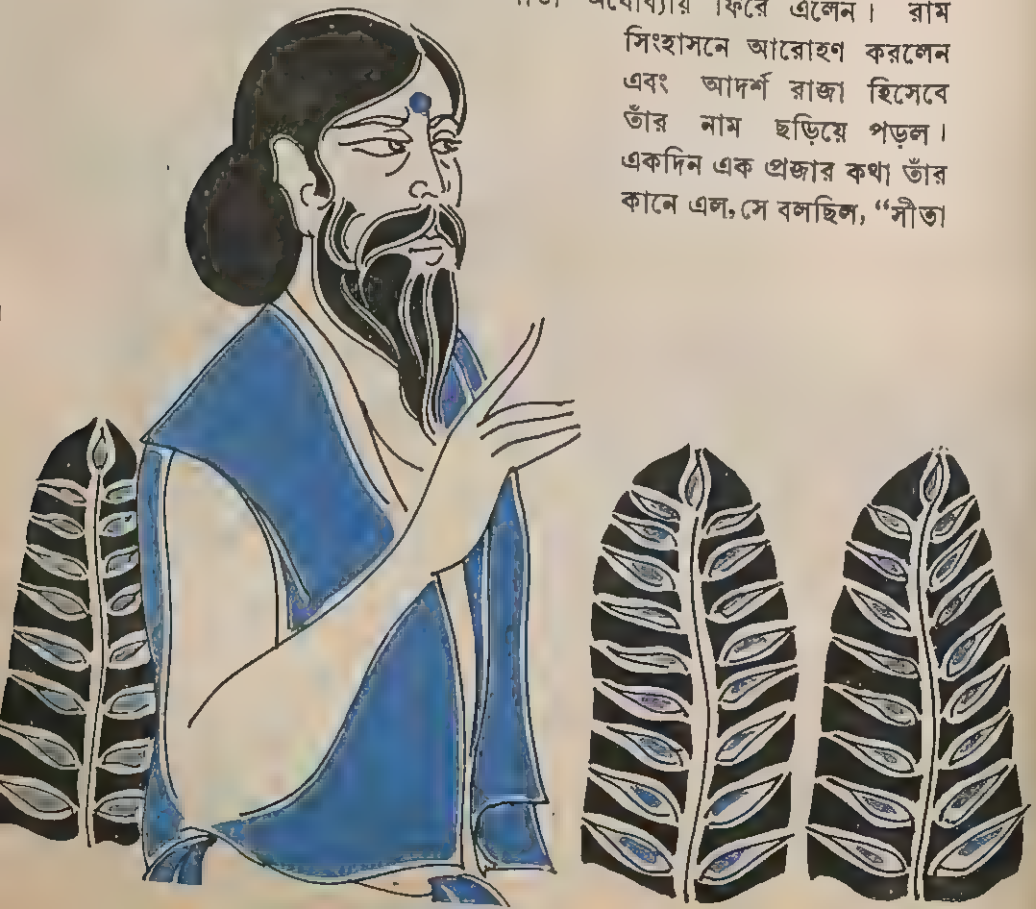 অযোধ্যায় ফিরে এলেন। রাম
সিংহাসনে আরোহণ করলেন
এবং আদর্শ রাজা হিসেবে
তাঁর নাম ছড়িয়ে পড়ল।
একদিন এক প্রজার কথা তাঁর
কানে এল, সে বলছিল, “সীতা